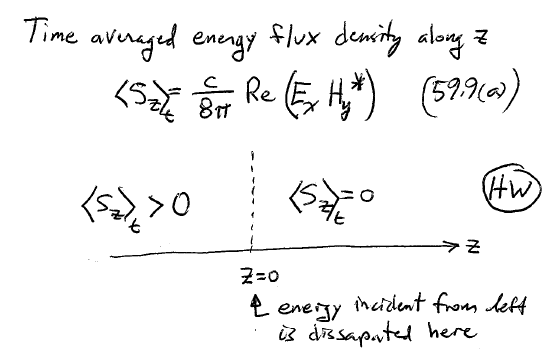 Time averaged energy flux density along z
⟨S_z⟩_t = c/8π Re (E_x H_y^*) (59.9(a))
⟨S_z⟩_t > 0 ⟨S_z⟩_t = 0 HW
z
z=0
energy incident from left
is dissapated here